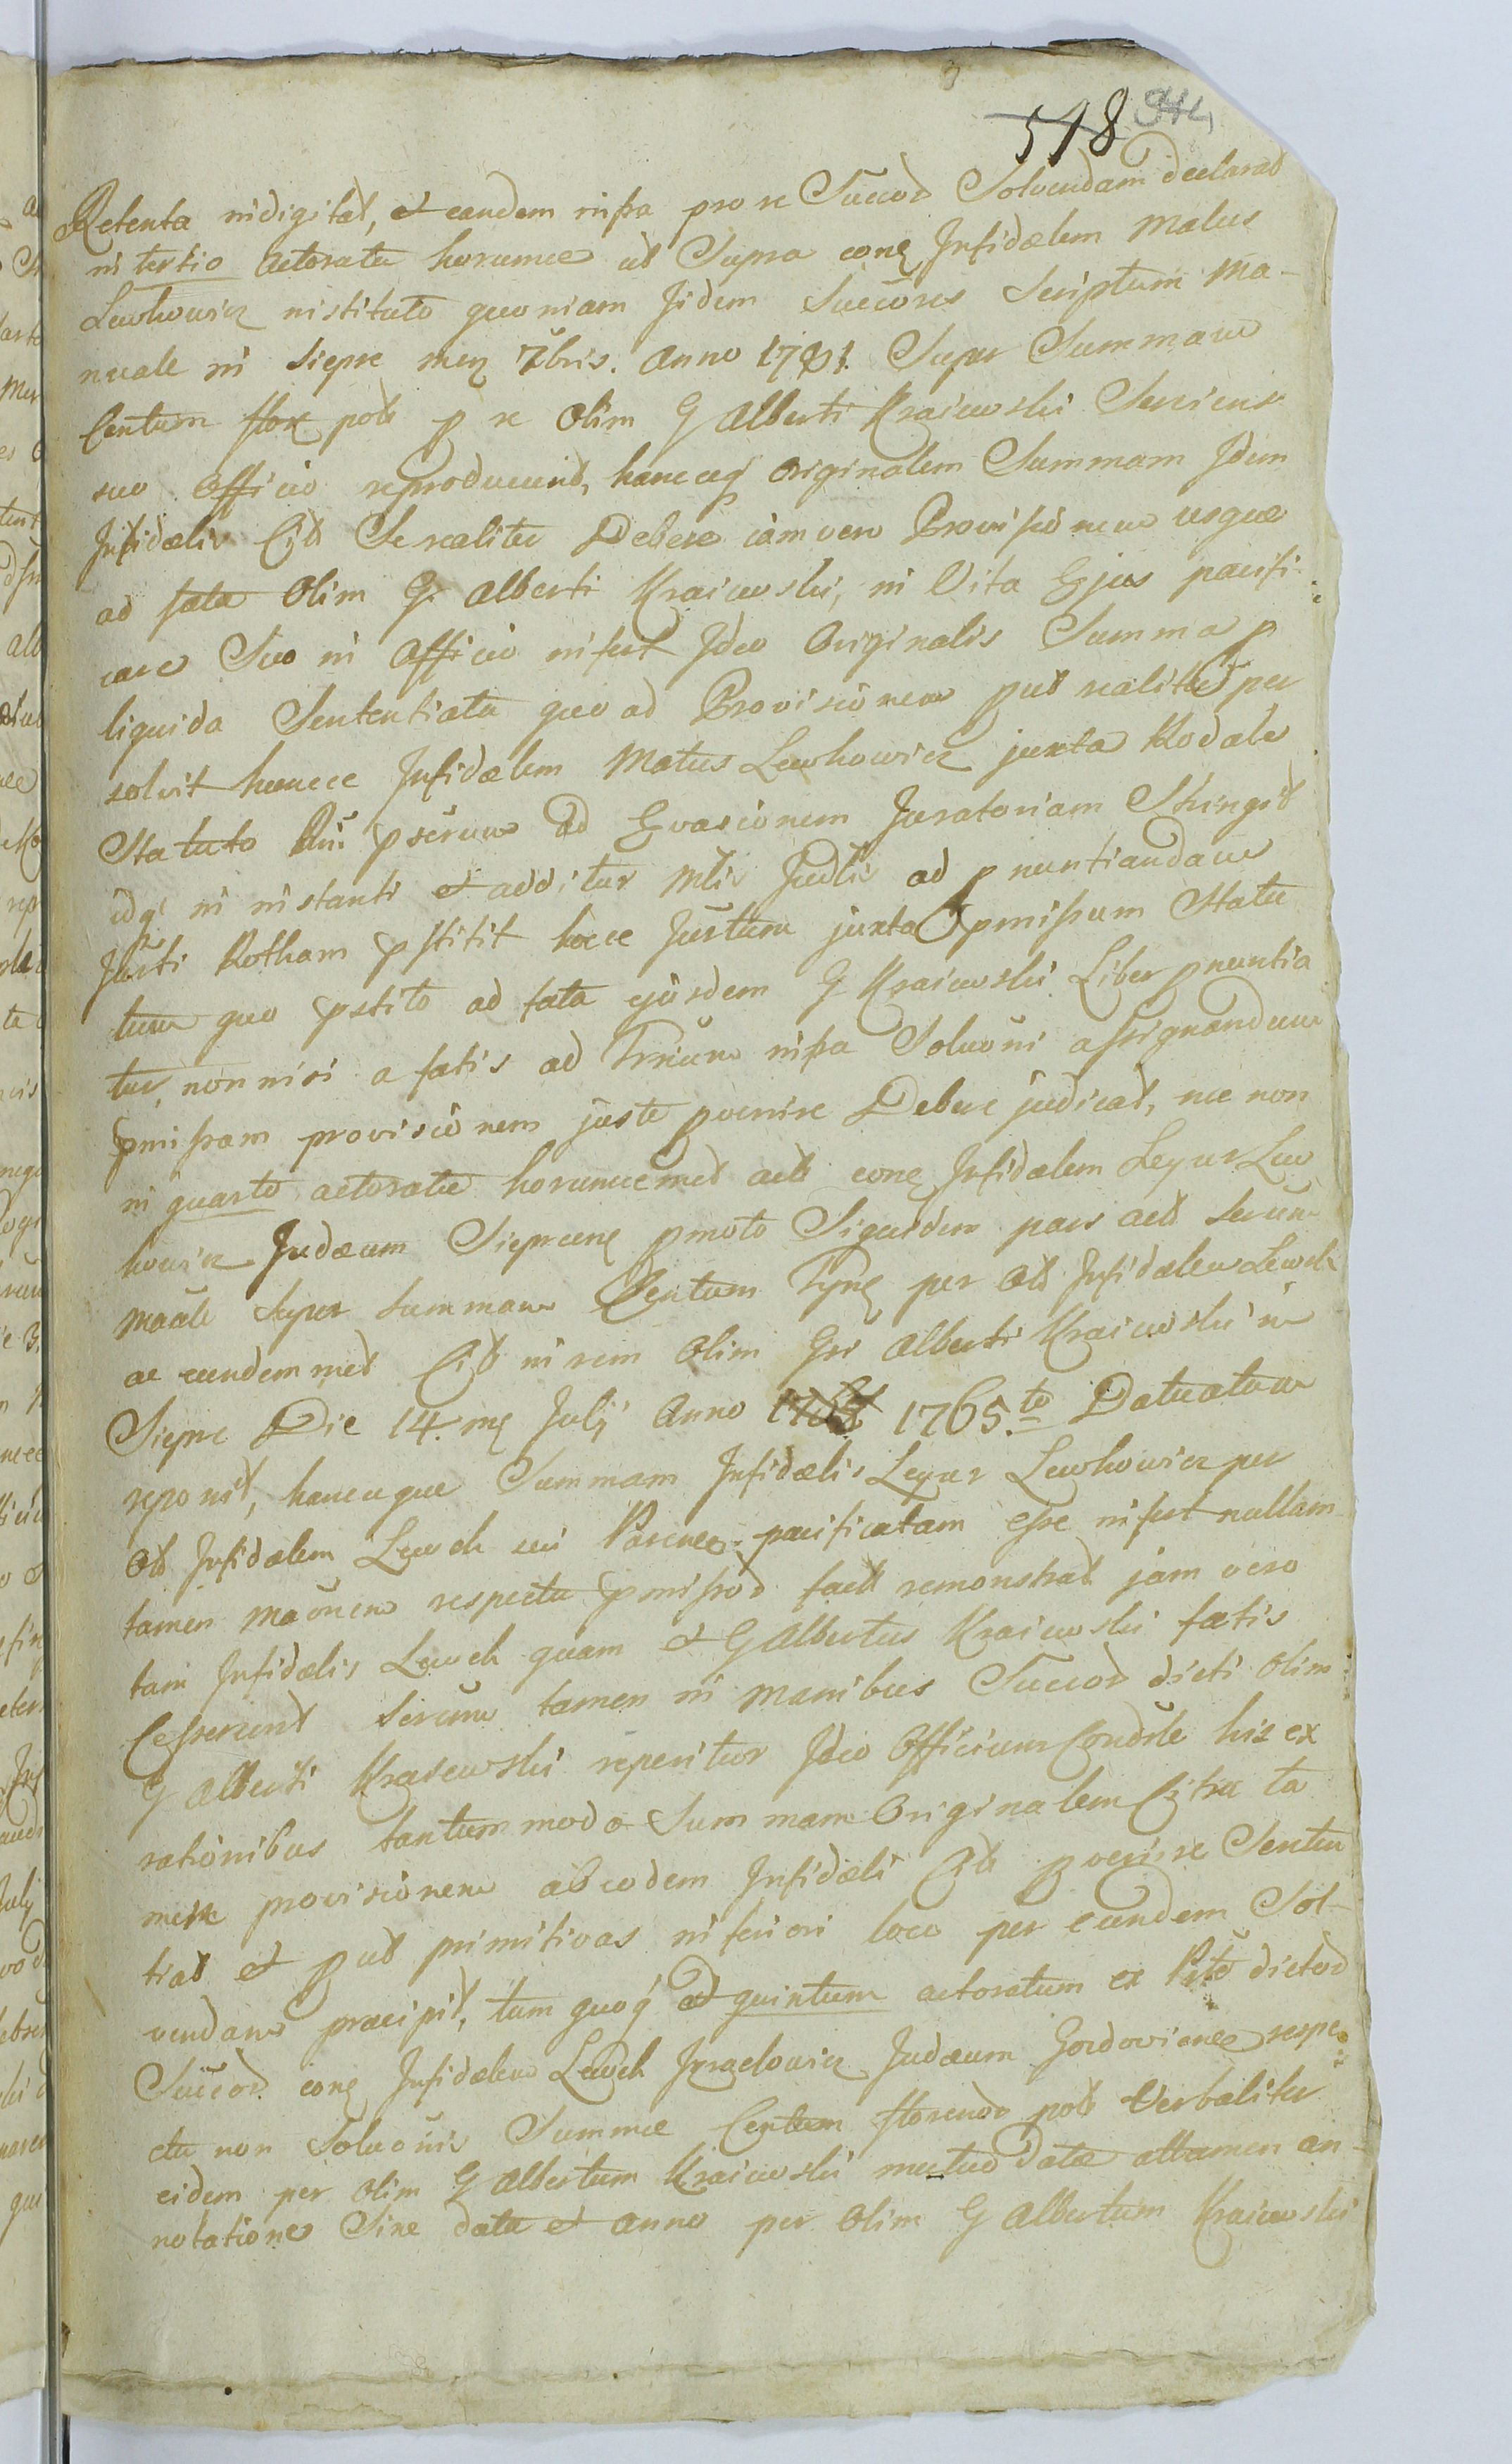 518 544
Retenta indigitat, et eandem infra pro se Succod Solvendam declarat
in tertio actoratu horumce ut Supra conq Infidælem Matus
Lewkowicz instituto quoniam Jidem Succores Scriptum Ma-
nuale in Siepre mensq 7bris. Anno 1781. Super Summam
Centum flor pol p re Olim G Alberti Kraiewski Serviens
suo Officio reproducunt, hancq Originalem Summam Idem
Infidælis Citt Se realiter Debere iam vero Provisionem usque
ad fata Olim G. Alberti Kraiewski, in Vita Ejus pacifi-
care Suo in Officio infert Ideo Originalis Summa p
liquida Sententiata quo ad Provisionem put realiter per
solvit huncce Infidælem Matus Lewkowicz juxta Rodale
Statuto pserum Ad Evasionem Juratoriam Stringit
idq in instanti et additur Mlis Judlis ad pnuntiandam
Jurti Rotham pstitit hocce Jurtum juxta pmissum Statu
tum quo pstito ad fata ejusdem G Kraiewski Liber pnuntia
tur, non nisi a fatis ad Trnum infra Soluoni assignandum
pmissam provisionem juste pvenire Debere judicat, nec non
in quarto actoratu horumcemet actt conq Infidælem Leyzer Lew
kowicz Judæum Sieprcenq pmoto Siquidem pars act Scrum
Maale Super Summam Centum Tynq per Olt Infidælem Lewek
ac eundemmet Citt in rem Olim Gsi Alberti Kraiewski in
Siepre Die 14. mq Julj Anno 1765.to Datuatum
reponit, hancque Summam Infidælis Leyzer Lewkowicz per
Olt Infidælem Lewek sui Parene pacificatam esse infert nullam
tamen Maonem respectu pmissod fact remonstrat jam vero
tam Infidælis Lewek quam et G Albertus Kraiewski fatis
Cesserunt Scrum tamen in Manibus Succod dicti Olim
G Alberti Kraiewski reperitur Ideo Officium Condrle his ex
rationibus tantummodo Summam Originalem Citra ta
men provisionem ab eodem Infidæli Citt pvenire Senten
tiat et put primitivas inferiori loco per eundem Sol-
vendam præcipit, tum quoq ad quintum actoratum ex Ptte dictod
Succod conq Infidælem Lewek Jzraelowicz Judæum Gozdovienq respe
ctu non Soluonis Summæ Centum florenod pol Verbaliter
eidem per Olim G Albertum Kraiewski mutuo Datæ attamen an-
notationes Sine data et anno per Olim G Albertum Kraiewski